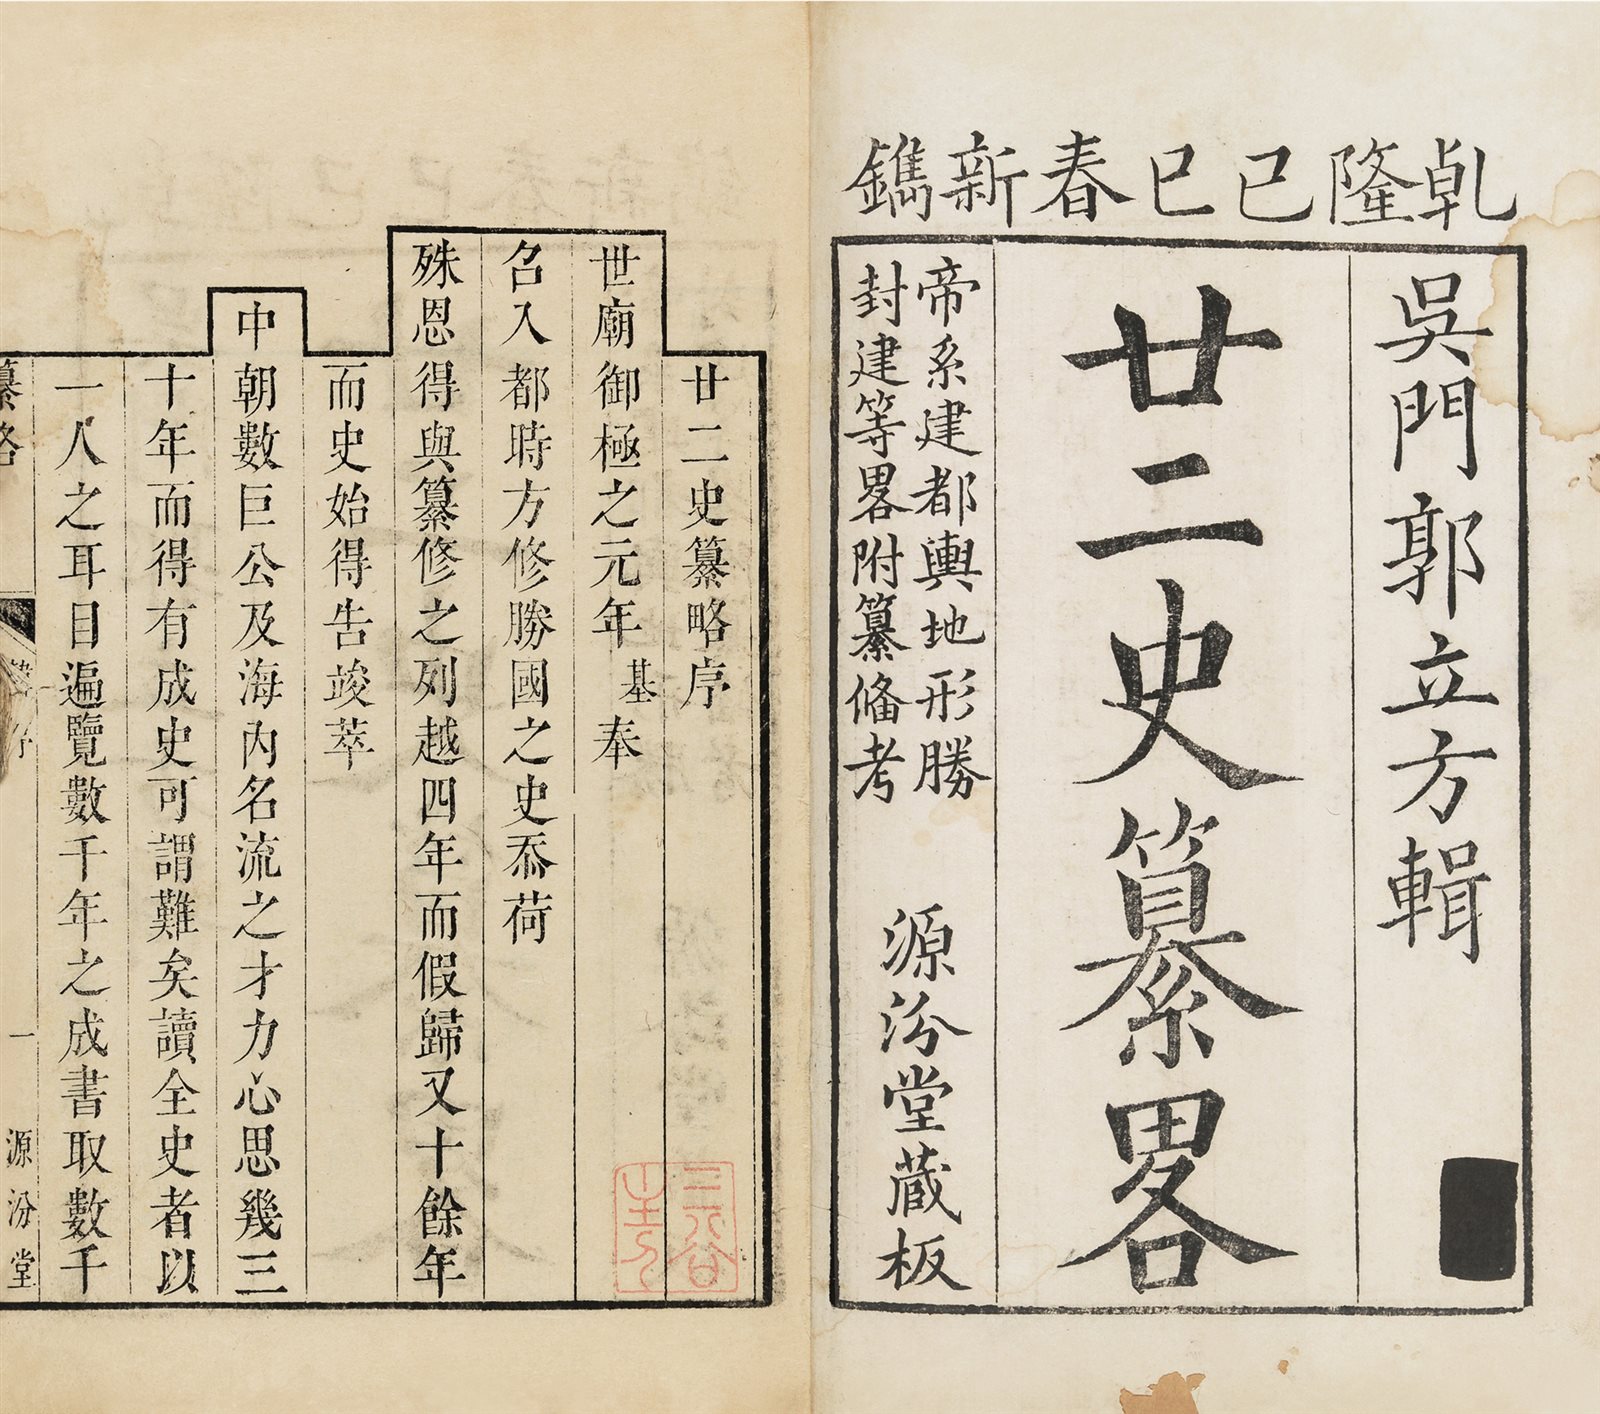 乹隆己巳春新鐫
吳門郭立方輯
廿二史纂畧
帝系建都輿地形勝
封建等畧附纂俻考
源汾堂蔵板
廿二史纂略序
世廟御極之元年基奉
召入都時方修勝國之史忝荷
殊恩得與纂修之列越四年而假歸又十餘年
而史始得告竣萃
中朝數巨公及海內名流之才力心思幾三
十年而得有成史可謂難矣讀全史者以
一人之耳目遍覽數千年之成書取數千
纂略 序 一 源汾堂